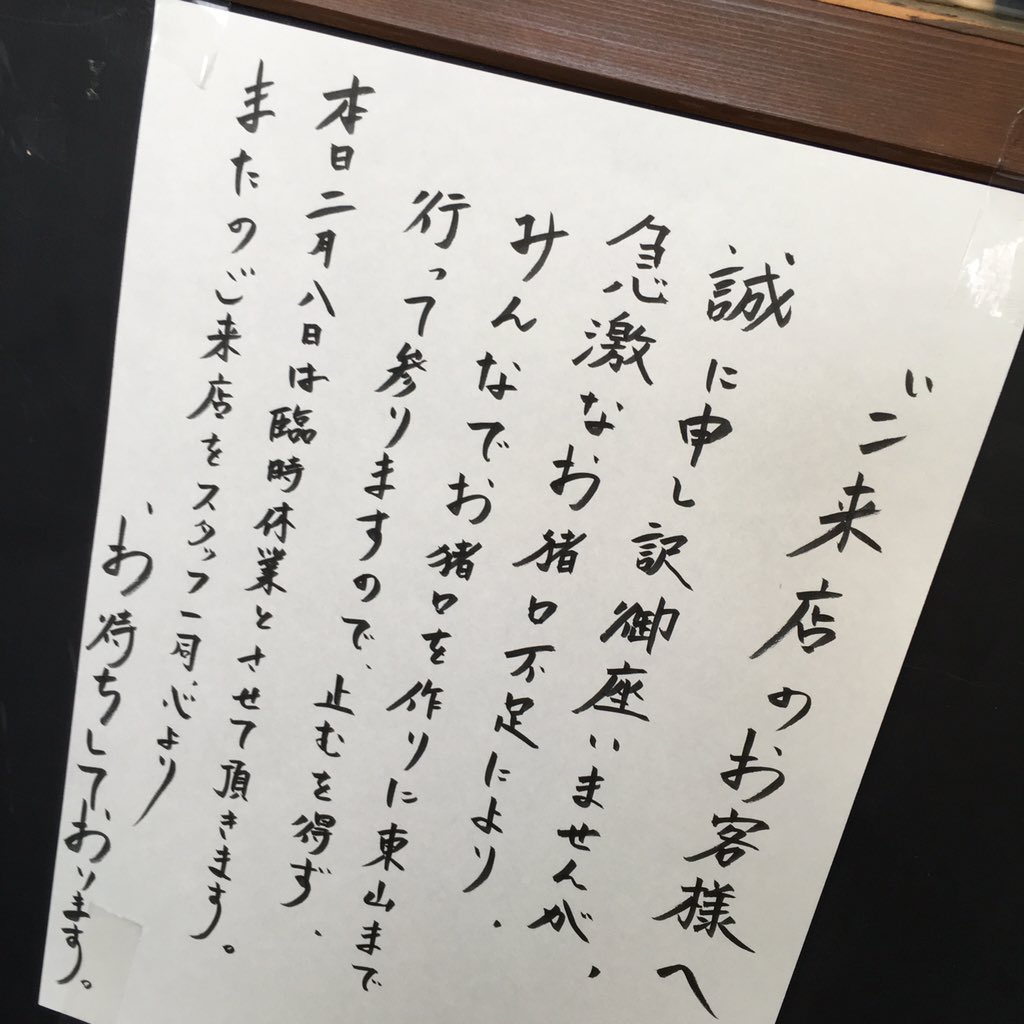 ご来店のお客様へ
誠に申し訳御座いませんが、
急激なお猪口不足により、
みんなでお猪口を作りに東山まで
行って参りますので、止むを得ず、
本日二月八日は臨時休業とさせて頂きます。
またのご来店をスタッフ一同、心より
お待ちしております。